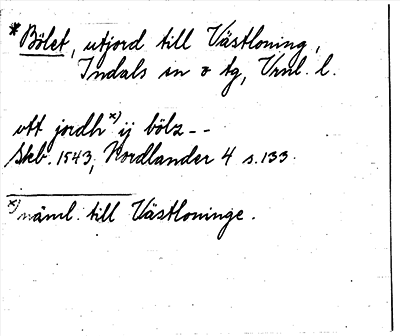 *Bölet, utjord till Västloning,
Indals sn o tg, Vrnl. l.
ott jordh x) ij bölz - -
Skb. 1543, Nordlander 4 s. 133.
x) näml. till Västloninge.